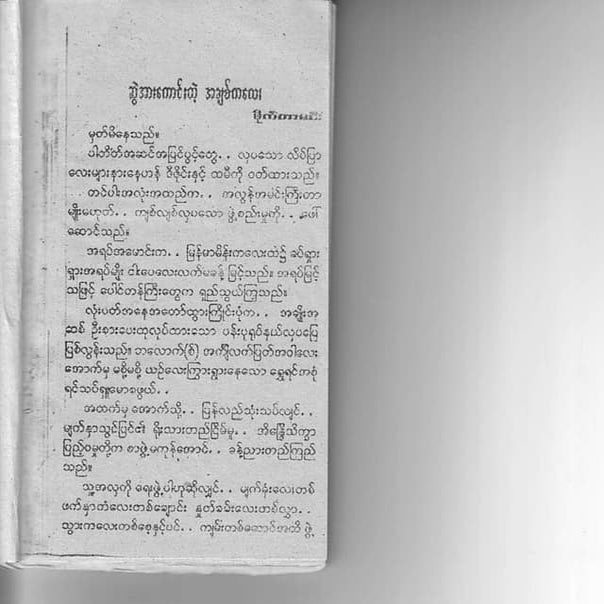 ဆွဲအားကောင်းတဲ့ အချစ်ကလေး
မှတ်မိနေသည်။
ပါတိတ်အဆင်အပြင်ပွင့်တွေ . . လှပသော လိပ်ပြာ
လေးများနားနေဟန် ဒီဇိုင်းနှင့် ထမီကို ဝတ်ထားသည်။
တင်ပါးအလုံးအထည်က . . အလွန်အမင်းကြီးတာ
မျိုးမဟုတ် . . ကျစ်လျစ်လှပသော ဖွဲ့စည်းမှုကို . . ဖော်
ဆောင်သည်။
အရပ်အမောင်းက . . မြန်မာမိန်းကလေးထဲ၌ ခပ်ရှား
ရှားအရပ်မျိုး ငါးပေလေးလက်မခန့် မြင့်သည်။ အရပ်မြင့်
သဖြင့် ပေါင်တန်ကြီးတွေက ရှည်သွယ်ကြသည်။
လုံးပတ်အနေအတော်ထွားကြိုင်းပုံက . . အချိုးအ
ဆစ် ဦးစားပေးထုလုပ်ထားသော ပန်းပုရုပ်နှယ်လှပပြေ
ပြစ်လွန်းသည်။ ဘလောက်(စ်) အင်္ကျီလက်ပြတ်အဝါလေး
အောက်မှ မစို့မပို့ ယဉ်လေးကြွားရွားနေသော ရွှေရင်အစုံ
ရင်သပ်ရှုမောစဖွယ် . .
အထက်မှ အောက်သို့ . . ပြန်လည်သုံးသပ်လျှင် . .
မျက်နှာသွင်ပြင်၏ ရိုးသားတည်ငြိမ်မှု . . အိန္ဒြေသိက္ခာ
ပြည့်ဝမှုတို့က စာဖွဲ့မကုန်အောင် . . ခန့်ညားတည်ကြည်
သည်။
သူ့အလှကို ရေးဖွဲ့ပါဟုဆိုလျှင် . . မျက်ခုံးလေးတစ်
ဖက်နှာတံလေးတစ်ချောင်း နှုတ်ခမ်းလေးတစ်လွှာ . .
သွားကလေးတစ်စေ့နှင့်ပင် . . ကျမ်းတစ်ဆောင်အထိ ဖွဲ့